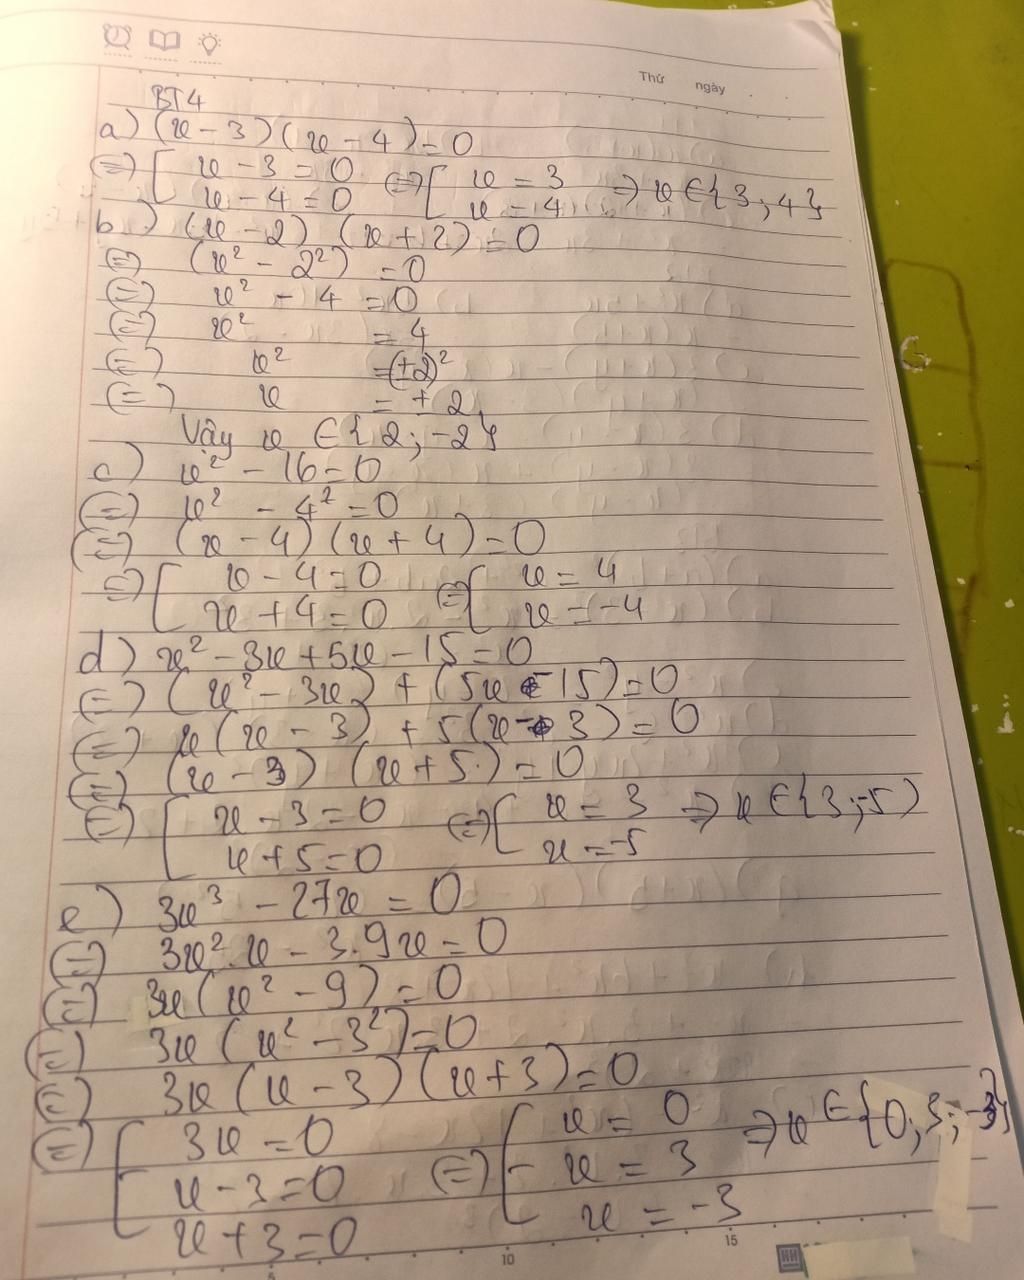 Thứ ngày
BT4
a) (x - 3)(x - 4) = 0
⇔ [ x - 3 = 0 ⇔ [ x = 3 ⇒ x ∈ {3; 4}
x - 4 = 0 x = 4
b) (x - 2) (x + 2) = 0
⇔ (x² - 2²) = 0
⇔ x² - 4 = 0
⇔ x² = 4
⇔ x² = (±2)²
⇔ x = ±2
Vậy x ∈ {2; -2}
c) x² - 16 = 0
⇔ x² - 4² = 0
⇔ (x - 4) (x + 4) = 0
⇔ [ x - 4 = 0 ⇔ [ x = 4
x + 4 = 0 x = -4
d) x² - 3x + 5x - 15 = 0
⇔ (x² - 3x) + (5x - 15) = 0
⇔ x(x - 3) + 5(x - 3) = 0
⇔ (x - 3) (x + 5) = 0
⇔ [ x - 3 = 0 ⇔ [ x = 3 ⇒ x ∈ {3; -5)
x + 5 = 0 x = -5
e) 3x³ - 27x = 0
⇔ 3x².x - 3.9x = 0
⇔ 3x(x² - 9) = 0
⇔ 3x(x² - 3²) = 0
⇔ 3x(x - 3)(x + 3) = 0
⇔ [ 3x = 0 ⇔ [ x = 0 ⇒ x ∈ {0; 3; -3}
x - 3 = 0 x = 3
x + 3 = 0 x = -3
5 10 15